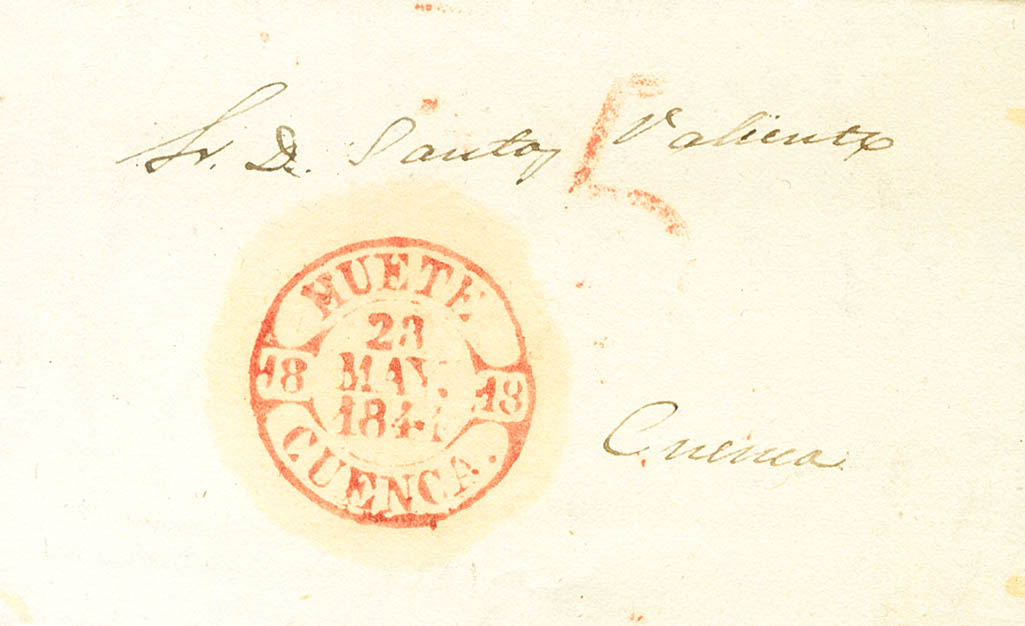 Sr. D. Santos Valiente
5
HUETE
28
MAY.
1844
18 18
CUENCA.
Cuenca